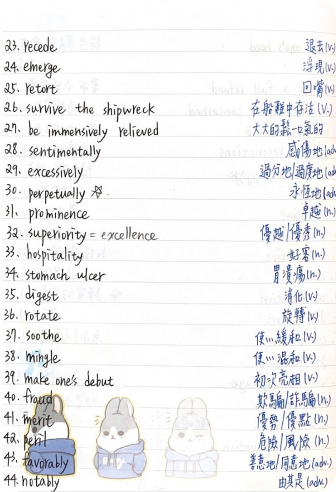 23. recede 退去(v.)
24. emerge 浮現(v.)
25. retort 回嘴(v.)
26. survive the shipwreck 在船難中存活(v.)
27. be immensively relieved 大大的鬆一口氣的
28. sentimentally 感傷地(adv
29. excessively 過分地/過度地(adv.
30. perpetually 永恆地(adv
31. prominence 卓越(n.)
32. superiority = excellence 優越/優秀(n.)
33. hospitality 好客(n.)
34. stomach ulcer 胃潰瘍(n.)
35. digest 消化(v.)
36. rotate 旋轉(v.)
37. soothe 使...緩和(v.)
38. mingle 使...混和(v.)
39. make one's debut 初次亮相(v.)
40. fraud 欺騙/詐騙(n.)
41. merit 優勢/優點(n.)
42. peril 危險/風險(n.)
43. favorably 善意地/同意地(adv
44. notably 尤其是(adv.)